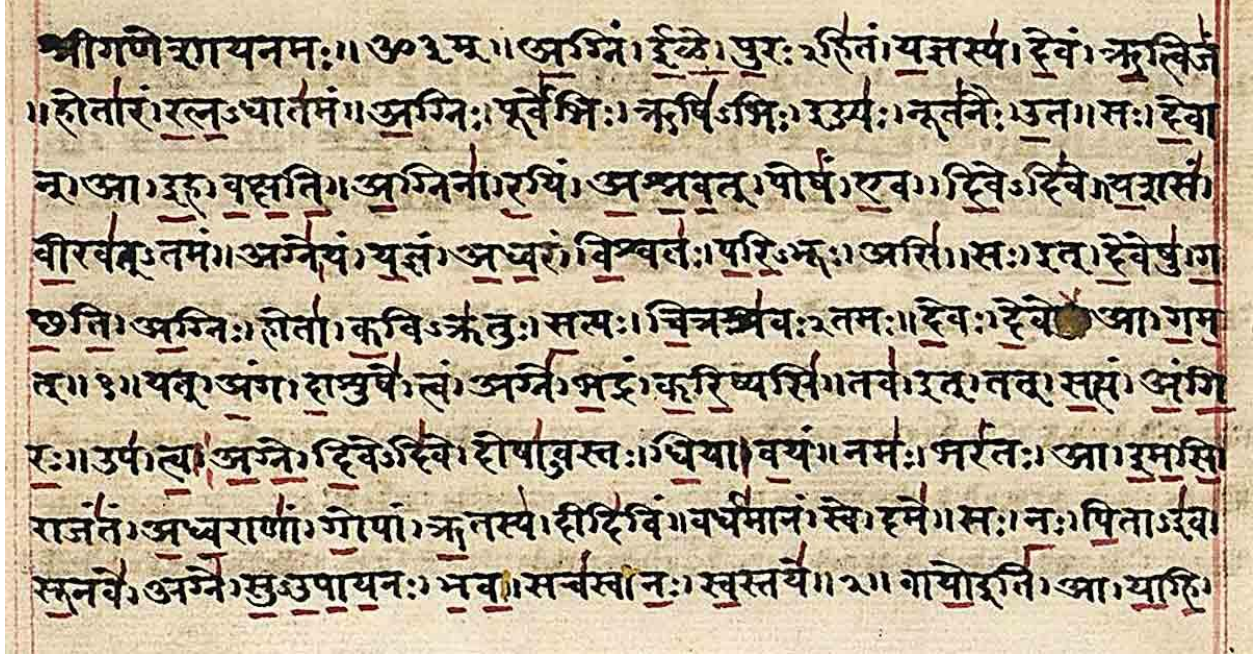 श्रीगणेशायनमः॥ ॐ३म्॥ अ॒ग्निं। ई॒ळे॒। पु॒रः२हि॑तं। य॒ज्ञस्य॑। दे॒वं। ऋ॒त्विज॑
॥होता॑रं। र॒त्न॒ऽधात॑मं॥ अ॒ग्निः। पूर्वे॑भिः। ऋषि॑ऽभिः। ईड्यः॑। नूत॑नैः। उ॒त॥ सः। दे॒वा
न्। आ। इ॒ह। व॒क्ष॒ति॒॥ अ॒ग्निना॑। र॒यिं। अ॒श्न॒व॒त्। पोषं॑। ए॒व। दि॒वेऽदि॑वे॥ य॒शसं॑।
वी॒रव॑त्ऽतमं॥ अग्ने॑। यं। य॒ज्ञं। अ॒ध्व॒रं। वि॒श्वतः॑। प॒रि॒ऽभूः। असि॑॥ सः। इत्। दे॒वेषु॑। ग॒
छ॒ति॒। अ॒ग्निः। होता॑। क॒विऽक्र॑तुः। स॒त्यः। चि॒त्रश्र॑वः२तमः॥ दे॒वः। दे॒वे आ। ग॒म॒
त्॥ १॥ यत्। अं॒ग। दा॒शुषे॑। त्वं। अग्ने॑। भ॒द्रं। क॒रि॒ष्यसि॑॥ तव॑। इत्। तत्। स॒त्यं। अं॒गि॒
रः॒॥ उप॑। त्वा॒। अ॒ग्ने॒। दि॒वेऽदि॑वे। दोषा॑ऽवस्तः। धि॒या। व॒यं॥ नमः॑। भरं॑तः। आ। इ॒म॒सि॒
राजं॑तं। अ॒ध्व॒राणां॑। गो॒पां। ऋ॒तस्य॑। दीदि॑विं॥ वर्ध॑मानं। स्वे। दमे॑॥ सः। नः॒। पि॒ताऽइ॑व।
सू॒नवे॑। अग्ने॑। सु॒ऽउ॒पा॒य॒नः। भ॒व॒॥ सच॑स्व। नः॒। स्व॒स्तये॑॥ २॥ वायो॒इति॑। आ। या॒हि॒।